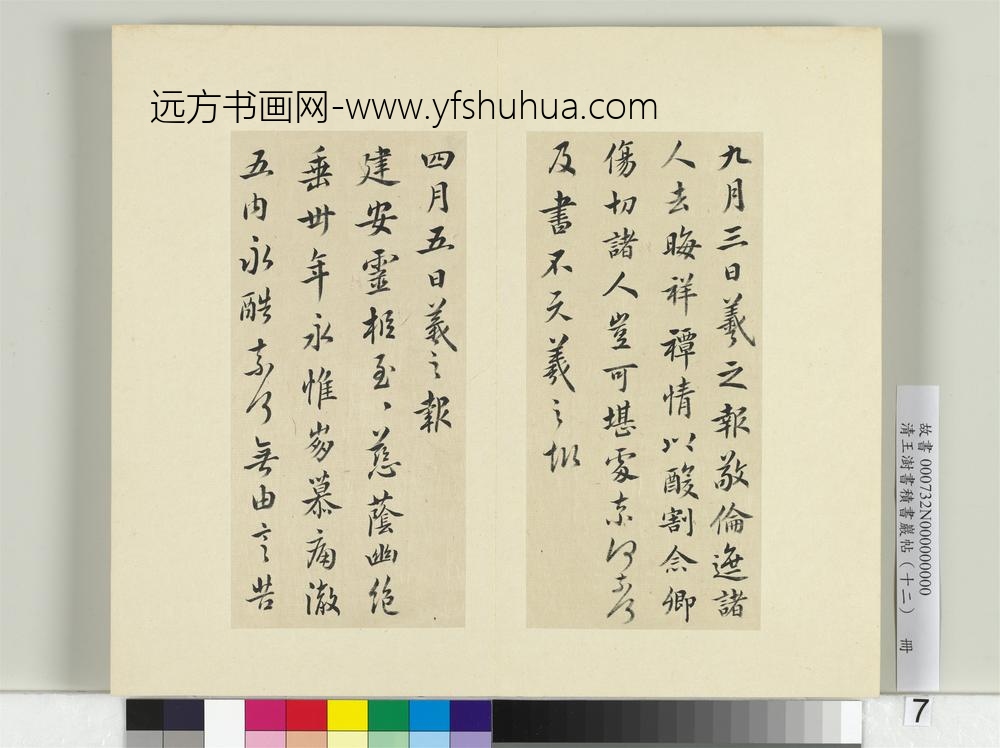 远方书画网-www.yfshuhua.com
九月三日羲之報敬倫遮諸
人去晦祥禫情以酸割念卿
傷切諸人豈可堪處奈何奈何
及書不次羲之報
四月五日羲之報
建安靈柩至、慈蔭幽絶
垂卅年永惟崩慕痛徹
五内永酷奈何無由言苦
故書 000732N000000000
清王澍書積書巖帖(十二) 冊
7